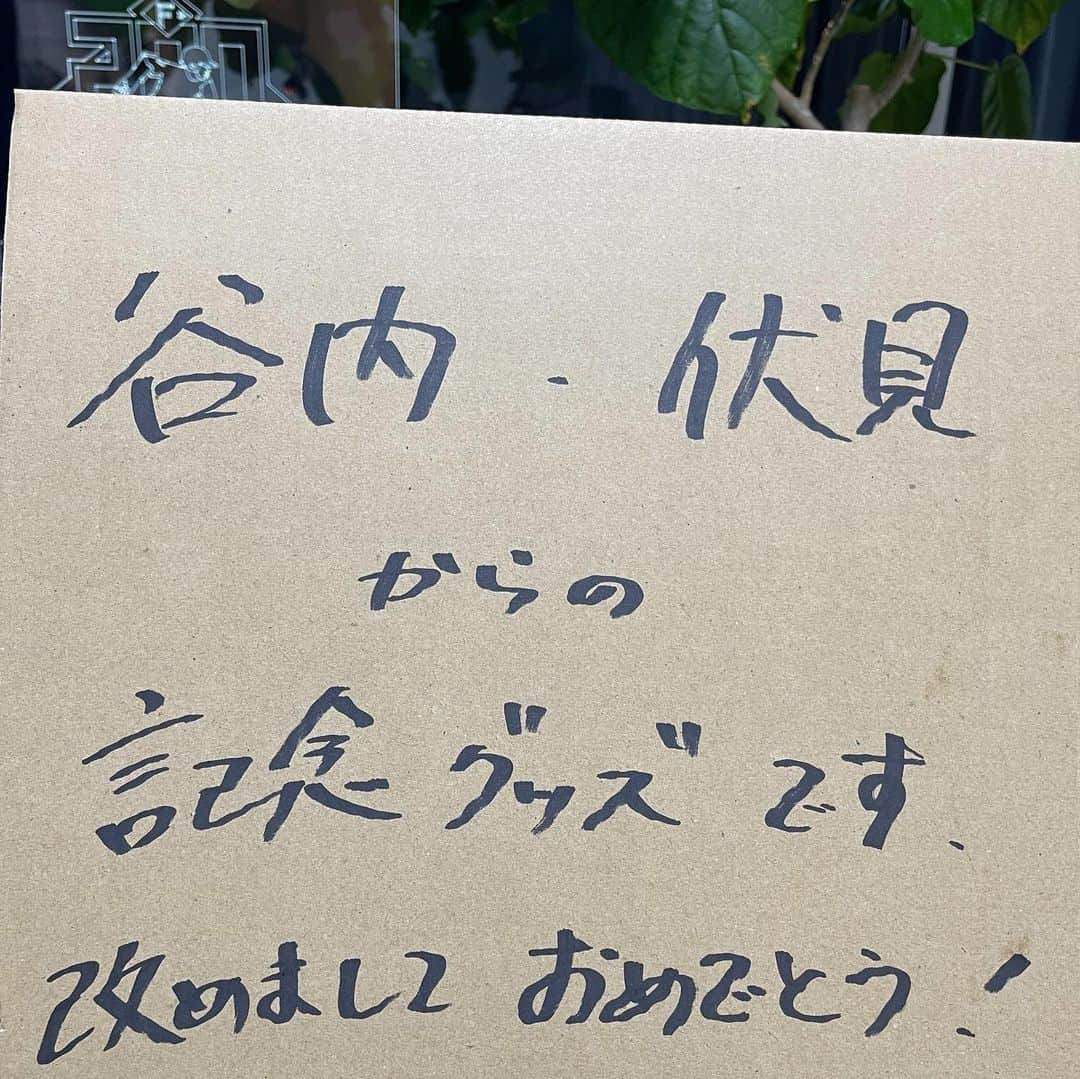 F
谷内・伏見
からの
記念グッズです.
改めまして おめでとう!